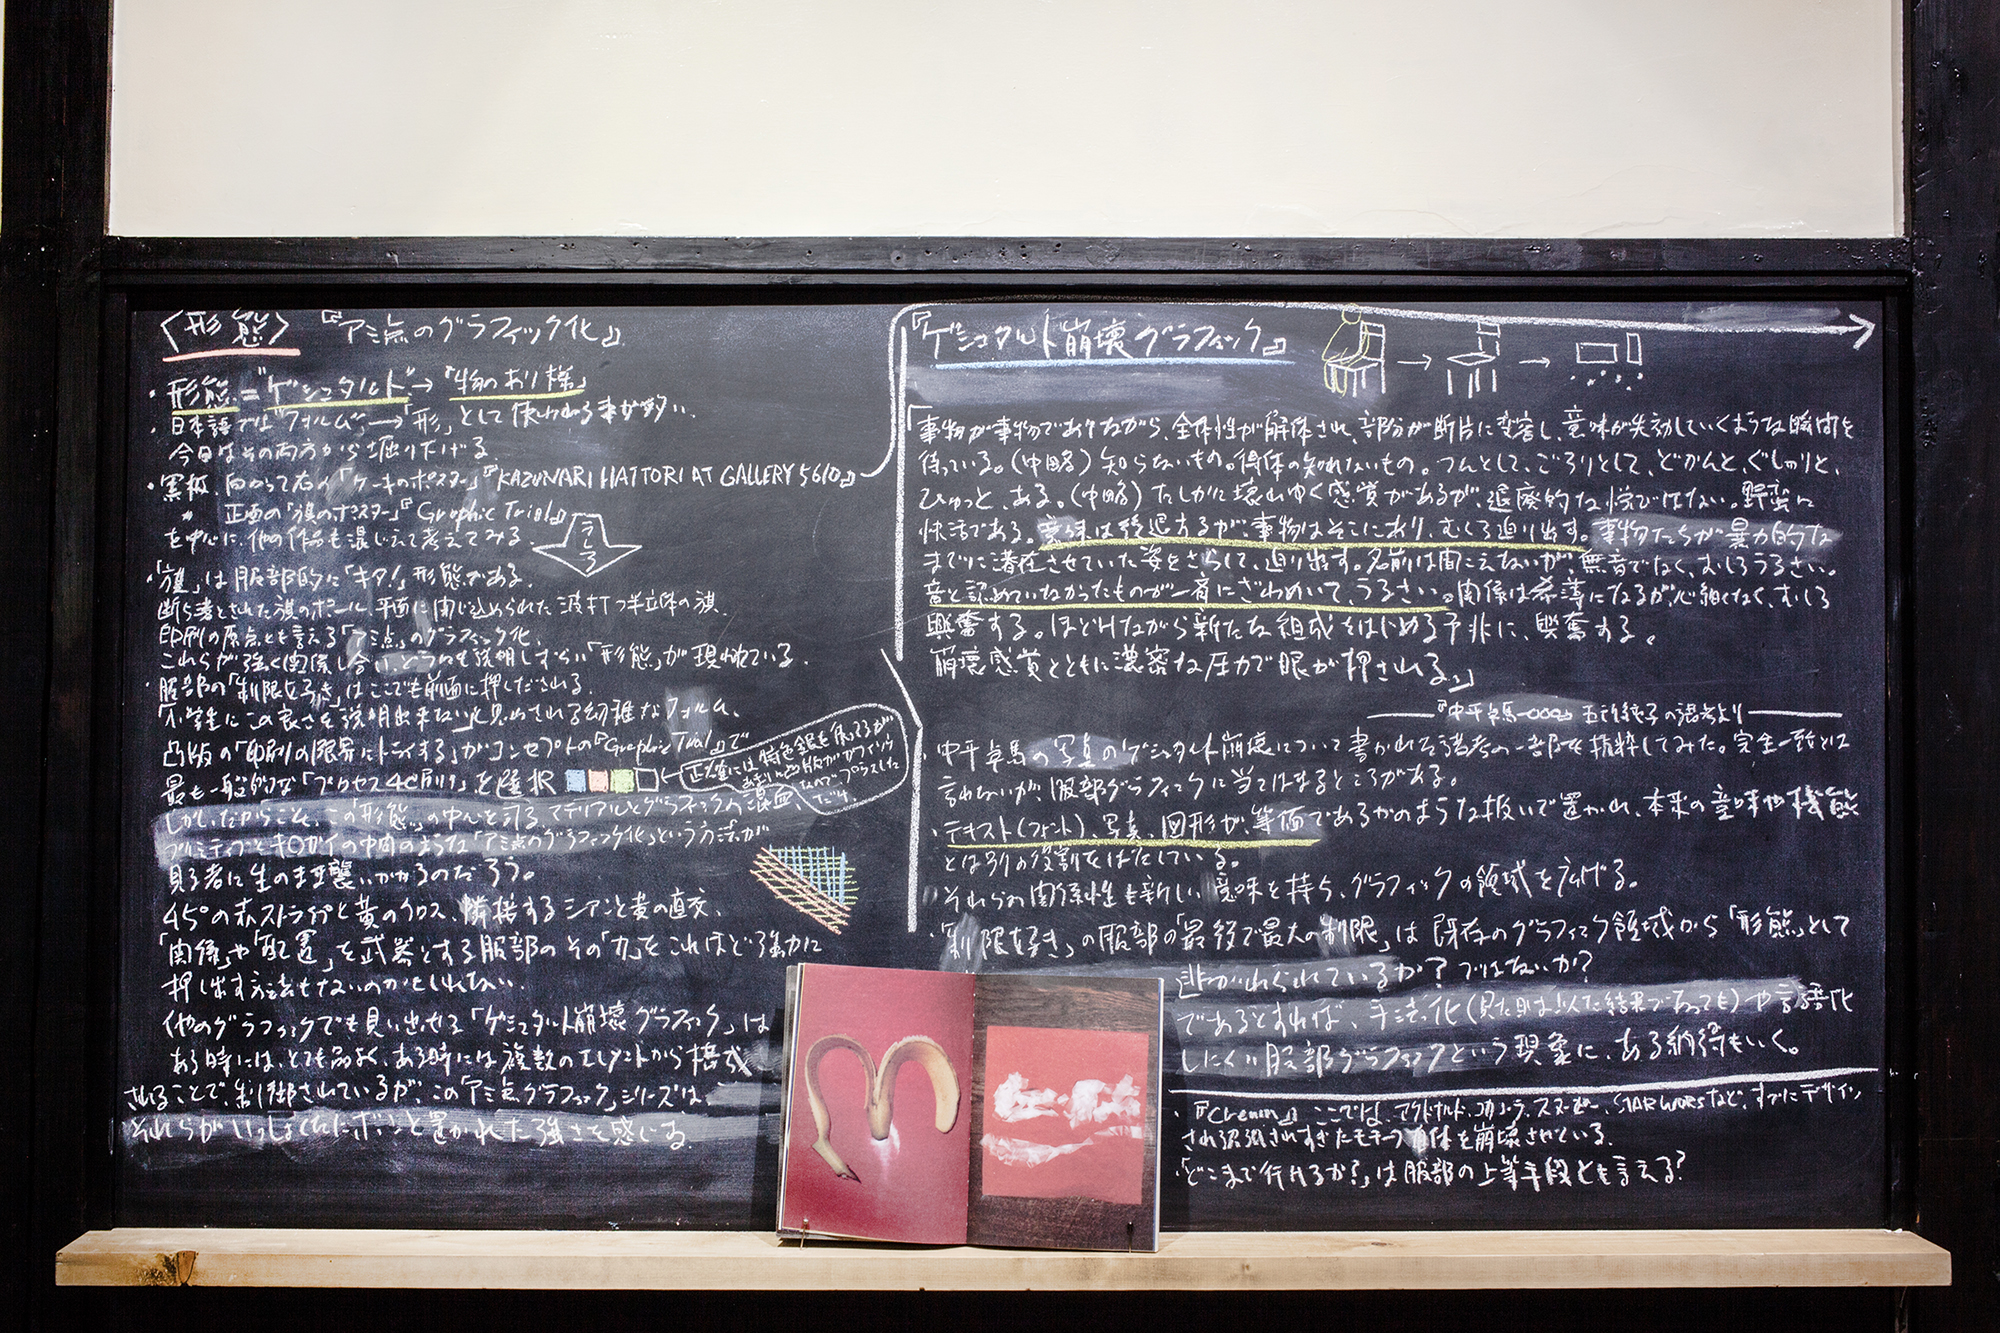 〈形態〉『アミ点のグラフィック化』
・形態="ゲシュタルト"→『物のあり様』
・日本語では"フォルム"→「形」として使われる事が多い。
今日はその両方から掘り下げる。
・黒板、向かって右の「ケーキのポスター」『KAZUNARI HATTORI AT GALLERY 5610』
〃 正面の「旗のポスター」『Graphic Trial』
を中心に、他の作品も混じえて考えてみる。
・「旗」は服部的に「キタ!」形態がある。
断ち落とされた旗のポール、平面に閉じ込められた波打つ半立体の旗、
印刷の原点とも言える「アミ点」のグラフィック化、
これらが強く関係し合い、どうにも説明しずらい「形態」が現われている。
・服部の「制限好き」はここでも前面に押しだされる。
「小学生にこの良さを説明出来ない」と思わされる幼稚なフォルム、
凸版の「印刷の限界にトライする」がコンセプトの『Graphic Trial』で
最も一般的な「プロセス4C刷り」を選択
正確には特色銀も使ってるが
プラスした
だけ
しかし、だからこそ、この「形態」の中心を司る、マテリアルとグラフィックの混血、
プリミティブとキワガイの中間のような「アミ点のグラフィック化」という方法が
見る者に生のまま襲いかかるのだろう。
45°の赤ストライプと黄のクロス、隣接するシアンと黄の直交、
「関係」や「配置」を武器とする服部のその「力」をこれほど強力に
押し出す方法もないのかもしれない。
他のグラフィックでも見い出せる「ゲシュタルト崩壊グラフィック」は
ある時には、とても品よく、ある時には複数のエレメントから構成
されることで、制御されているが、この「アミ点グラフィック」シリーズは、
それらがいっしょくたにボンと置かれた強さを感じる。
『ゲシュタルト崩壊グラフィック』
「事物が事物でありながら、全体性が解体され、部分が断片に変容し、意味が失効していくような瞬間を
待っている。(中略)知らないもの。得体の知れないもの。つんとして、ごろりとして、どかんと、ぐしゃりと、
ひゅっと、ある。(中略)たしかに壊れゆく感覚があるが、退廃的な悦ではない。野蛮に
快活である。意味は後退するが、事物はそこにあり、むしろ迫り出す。事物たちが暴力的な
までに潜在させていた姿をさらして、迫り出す。名前は聞こえないが、無音でなく、むしろうるさい。
音と認めていなかったものが一斉にざわめいて、うるさい。関係は希薄になるが、心細くなく、むしろ
興奮する。ほどけながら新たな組成をはじめる予兆に、興奮する。
崩壊感覚とともに濃密な圧力で眼が押される。」
中平卓馬の写真のゲシュタルト崩壊について書かれた論考の一部を抜粋してみた。完全一致とは
言わないが、服部グラフィックに当てはまるところがある。
・テキスト(フォント)、写真、図形が、等価であるかのような扱いで置かれ、本来の意味や機能
とは別の役割をはたしている。
それらの関係性も新しい意味を持ち、グラフィックの領域を広げる。
・「制限好き」の服部の「最後で最大の制限」は既存のグラフィック領域から「形態」として
逃がれられているか?ではないか?
であるとすれば、手法化(見た目は似た結果であっても)や言語化
しにくい服部グラフィックという現象に、ある納得もいく。
・『Cherem』ここでは、マクドナルド、コカコーラ、スヌーピー、STAR WARSなど、すでにデザイン
され認識されすぎたモチーフ自体を崩壊させている。
・「どこまで行けるか?」は服部の上等手段とも言える?